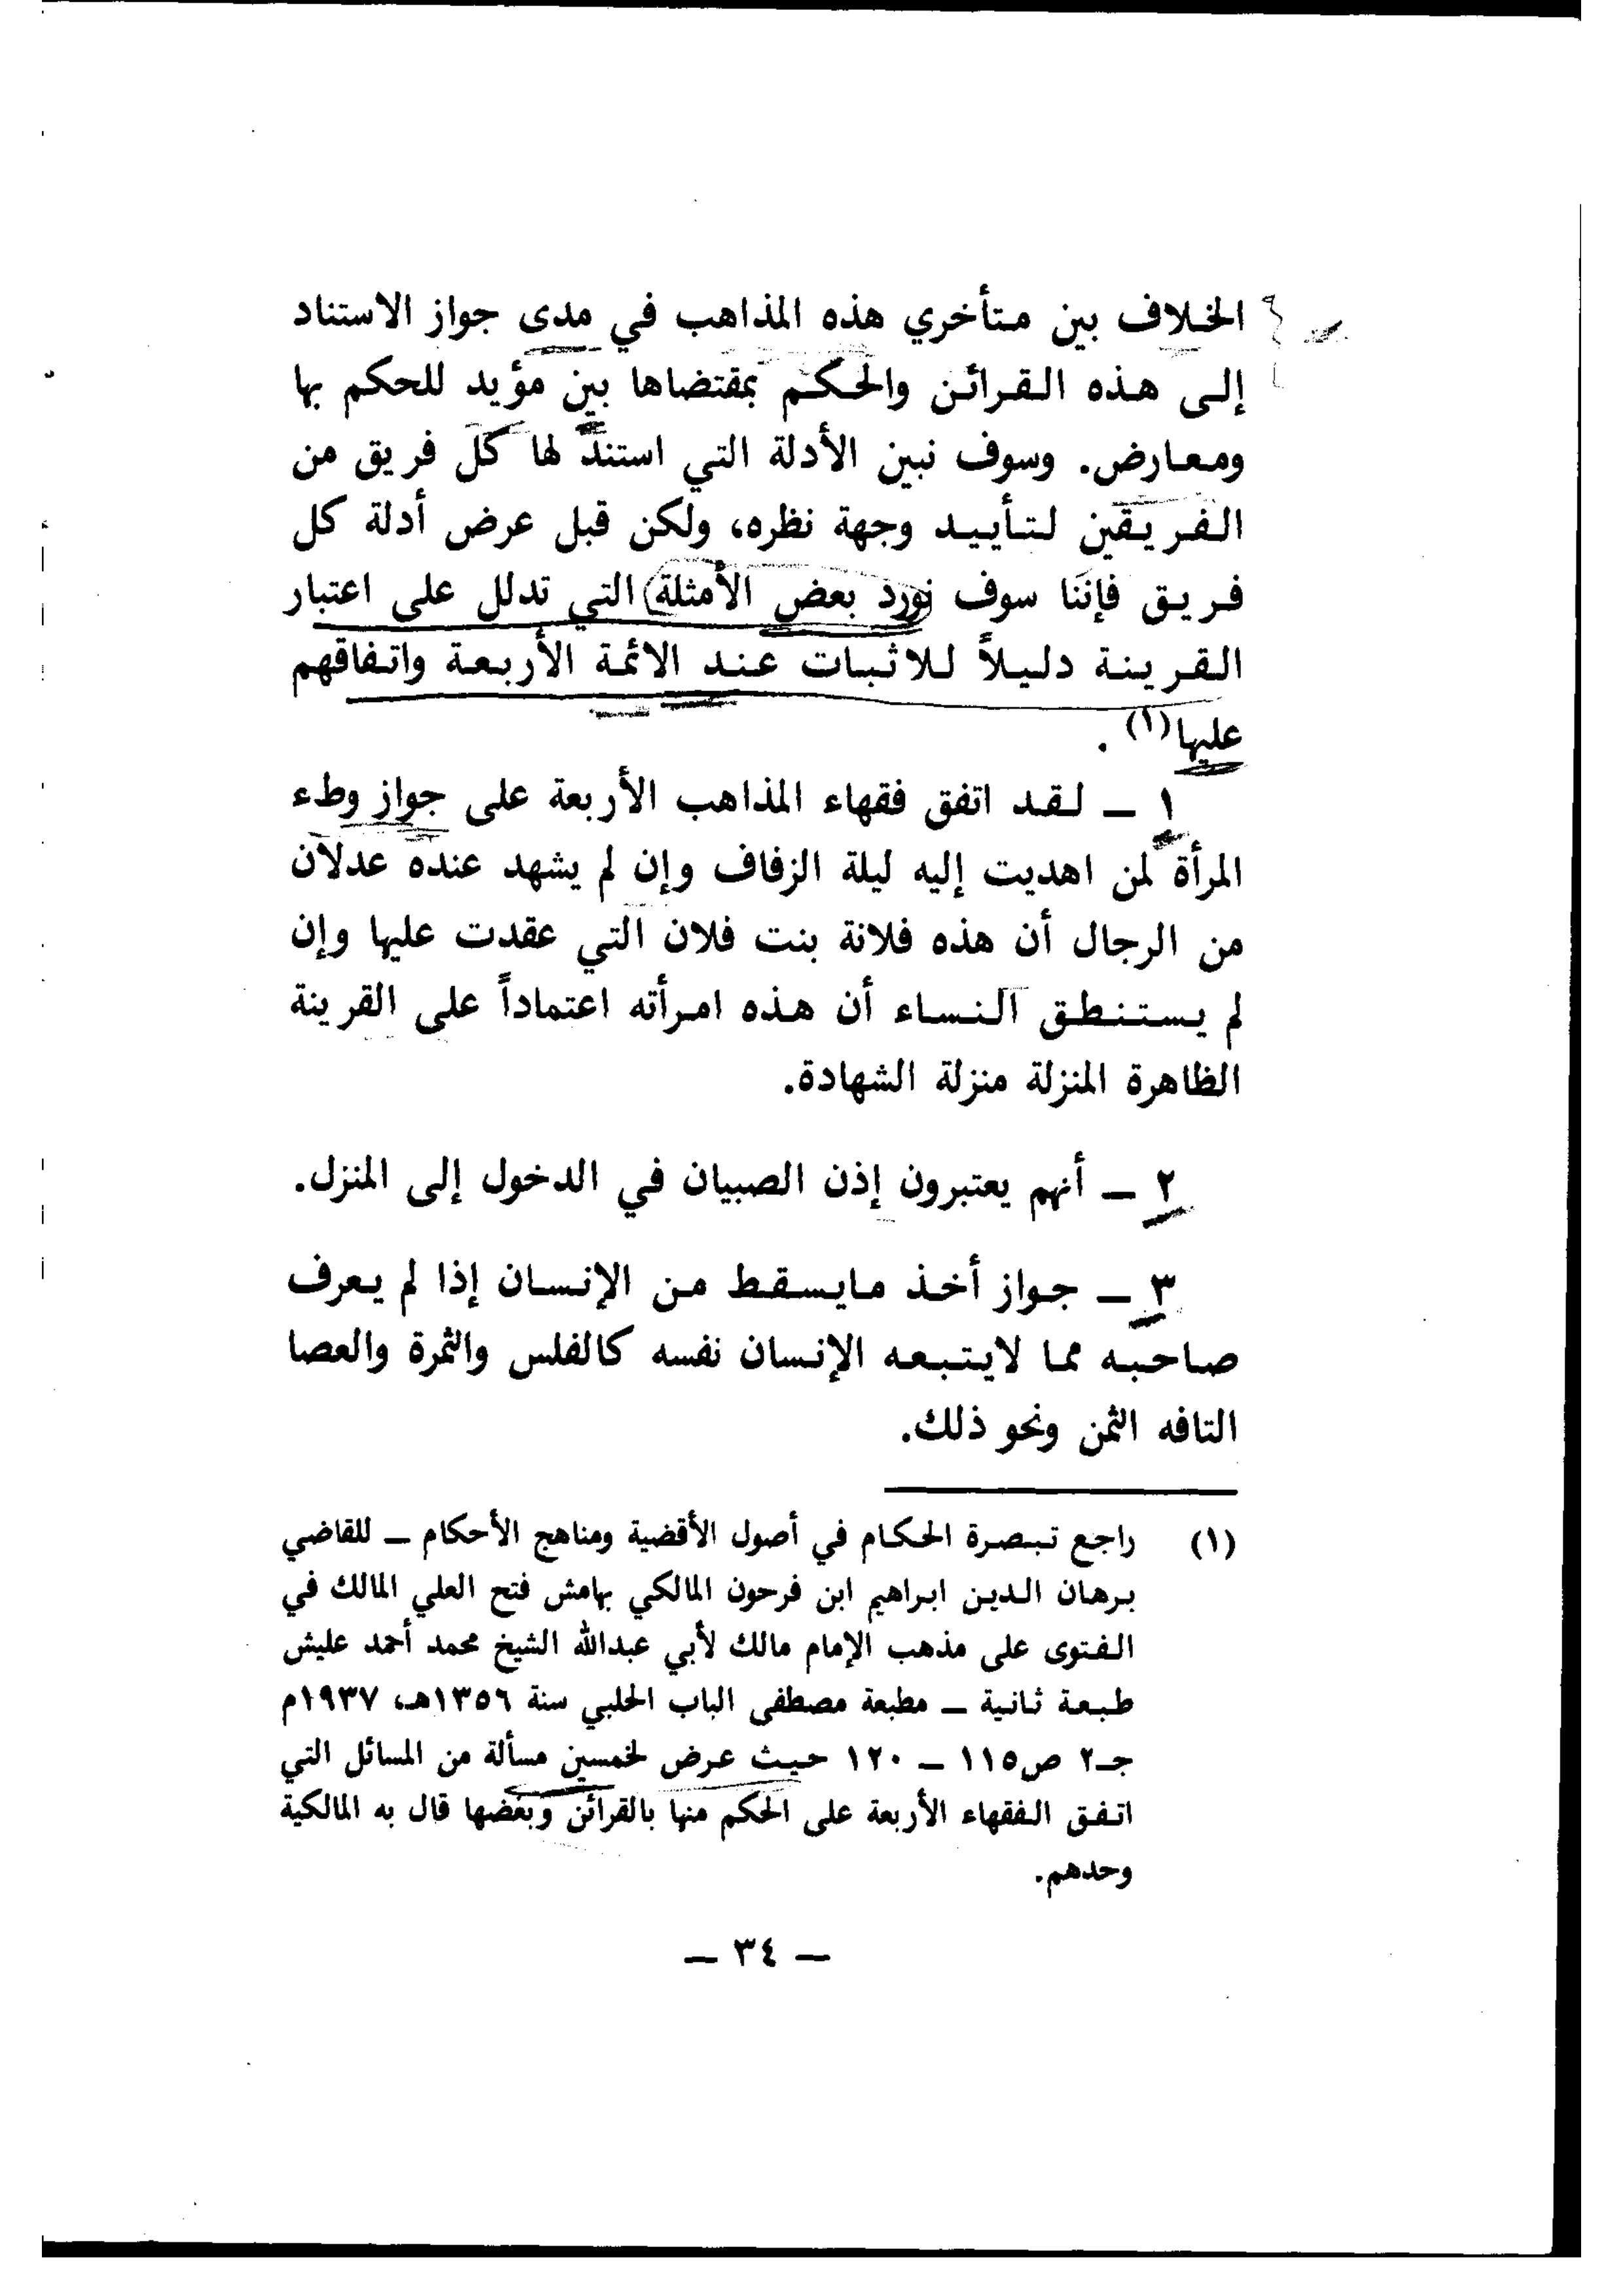 الخلاف بين متأخري هذه المذاهب في مدى جواز الاستناد
إلى هذه القرائن والحكم بمقتضاها بين مؤيد للحكم بها
ومعارض. وسوف نبين الأدلة التي استند لها كل فريق من
الفريقين لتأييد وجهة نظره، ولكن قبل عرض أدلة كل
فريق فإننا سوف نورد بعض الأمثلة التي تدلل على اعتبار
القرينة دليلاً للاثبات عند الائمة الأربعة واتفاقهم
عليها(١) .
١ – لقد اتفق فقهاء المذاهب الأربعة على جواز وطء
المرأة لمن اهديت إليه ليلة الزفاف وإن لم يشهد عنده عدلان
من الرجال أن هذه فلانة بنت فلان التي عقدت عليها وإن
لم يستنطق النساء أن هذه امرأته اعتماداً على القرينة
الظاهرة المنزلة منزلة الشهادة.
٢ – أنهم يعتبرون إذن الصبيان في الدخول إلى المنزل.
٣ – جواز أخذ مايسقط من الإنسان إذا لم يعرف
صاحبه مما لايتبعه الإنسان نفسه كالفلس والثمرة والعصا
التافه الثمن ونحو ذلك.
(١) راجع تبصرة الحكام في أصول الأقضية ومناهج الأحكام – للقاضي
برهان الدين ابراهيم ابن فرحون المالكي بهامش فتح العلي المالك في
الفتوى على مذهب الإمام مالك لأبي عبدالله الشيخ محمد أحمد عليش
طبعة ثانية – مطبعة مصطفى الباب الحلبي سنة ١٣٥٦هـ، ١٩٣٧م
جـ٢ ص١١٥ – ١٢٠ حيث عرض لخمسين مسألة من المسائل التي
اتفق الفقهاء الأربعة على الحكم منها بالقرائن وبعضها قال به المالكية
وحدهم.
– ٣٤ –